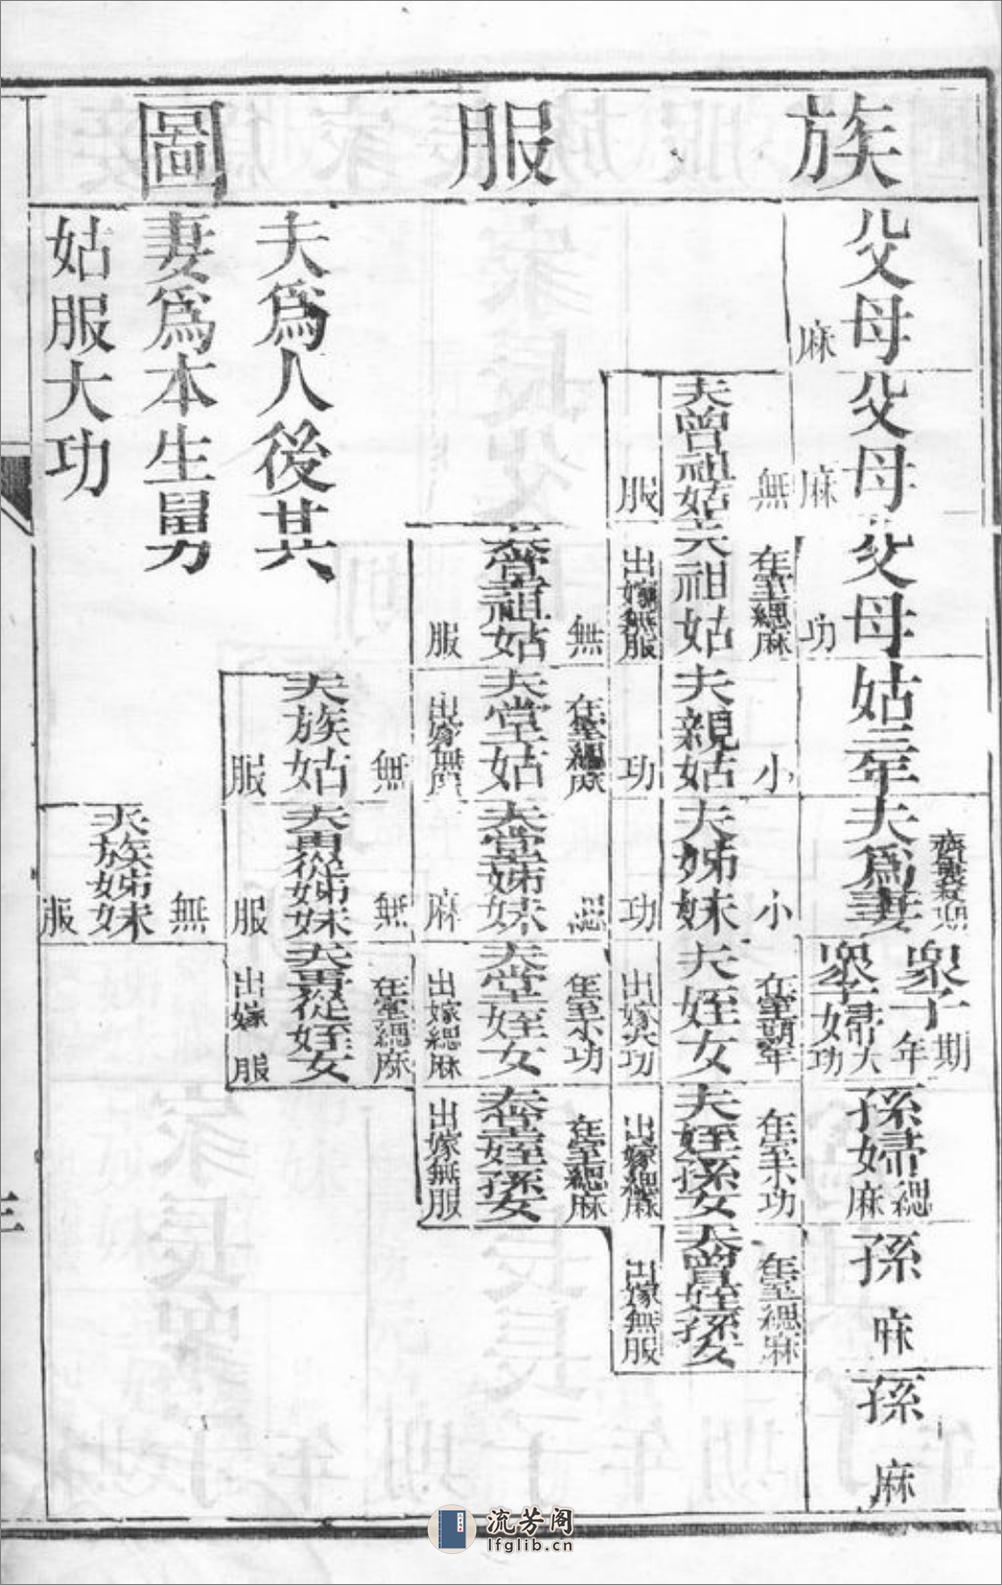 族服圖
父母
麻
父母
麻
父母
功
姑三年
夫爲妻
眾子
期年
眾子婦
大功
孫婦
緦麻
孫
麻
孫
麻
夫曾祖姑
無服
夫祖姑
在室緦麻
出嫁無服
夫親姑
小功
夫姊妹
小功
夫姪女
在室期年
出嫁大功
夫姪孫女
在室小功
出嫁緦麻
夫曾姪孫女
在室緦麻
出嫁無服
夫堂祖姑
無服
夫堂姑
在室緦麻
出嫁無服
夫堂姊妹
緦麻
夫堂姪女
在室小功
出嫁緦麻
夫堂姪孫女
在室緦麻
出嫁無服
夫族姑
無服
夫再從姊妹
無服
夫再從姪女
在室緦麻
出嫁 服
夫族姊妹
無服
夫爲人後其
妻爲本生舅
姑服大功
三
流芳阁
lfglib.cn